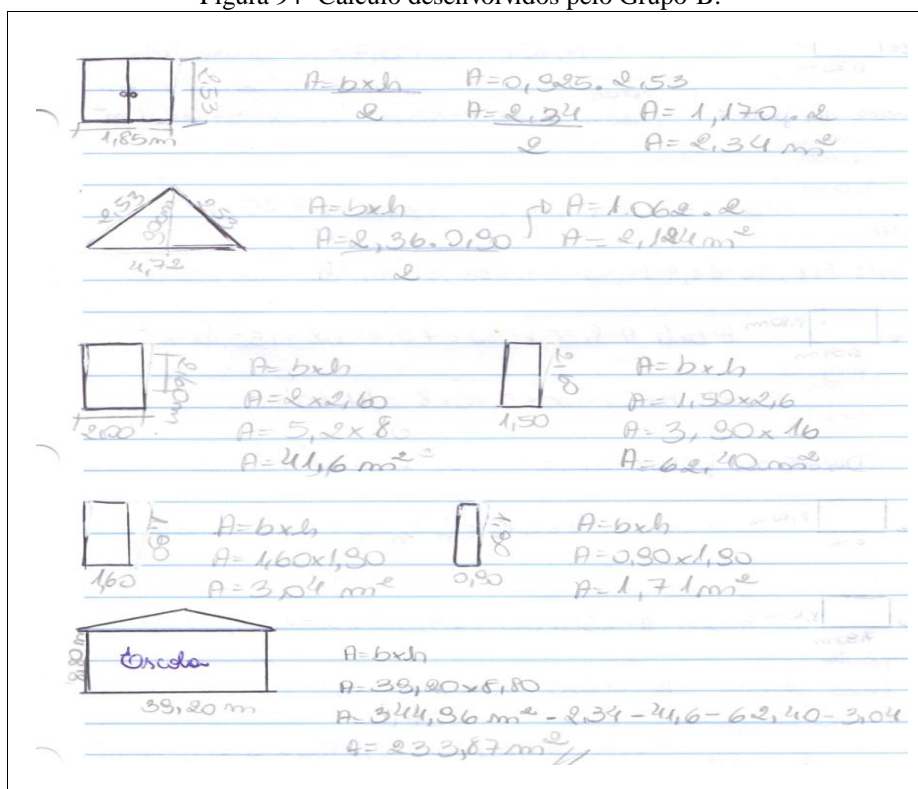 Figura 94- Cálculo desenvolvidos pelo Grupo B.
2,53
1,85m
A=bxh
2
A=0,925.2,53
A=2,34
2
A=1,170.2
A=2,34 m²
2,53
2,53
0,90
4,72
A=bxh
A=2,36.0,90
2
A=1.062.2
A=2,124m²
2,60m
2,00
A=bxh
A=2x2,60
A=5,2x8
A=41,6 m²
1,50
A=bxh
A=1,50x2,6
A=3,90x16
A=62,40m²
1,90
1,60
A=bxh
A=1,60x1,90
A=3,04 m²
1,90
0,90
A=bxh
A=0,90x1,90
A=1,71m²
8,80 m
Escola
39,20 m
A=bxh
A=39,20x8,80
A=344,96 m²-2,34-41,6-62,40-3,04
A=233,87m²//